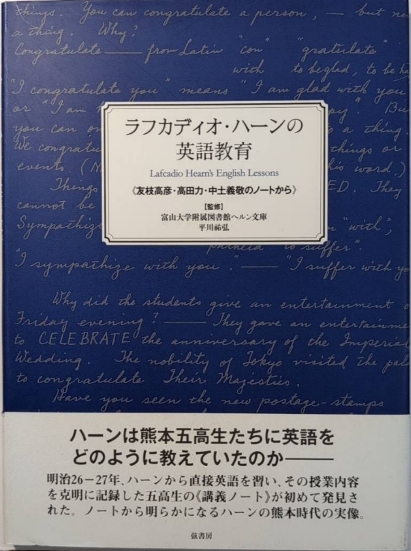 things. You can congratulate a person, — but no
a thing. Why?
Congratulate — from Latin "con" "gratulate"
with to be glad, to be
"I congratulate you" means "I am glad with you
ラフカディオ・ハーンの
英語教育
Lafcadio Hearn's English Lessons
《友枝高彦・高田力・中土義敬のノートから》
[監修]
富山大学附属図書館ヘルン文庫
平川祐弘
or "I am
you can on
We congratu
events (N
Things
cannot be
Sympathize
"I sympathize with you." — "I suffer with y
Why did the students give an entertainment
Friday evening? — They gave an entertainme
to CELEBRATE the anniversary of the Imperial
Wedding. The nobility of Tokyo visited the pal
to congratulate Their Majesties.
Have you seen the new postage-stamps
ハーンは熊本五高生たちに英語を
どのように教えていたのか———
明治26－27年、ハーンから直接英語を習い、その授業内容
を克明に記録した五高生の《講義ノート》が初めて発見さ
れた。ノートから明らかになるハーンの熊本時代の実像。
弦書房